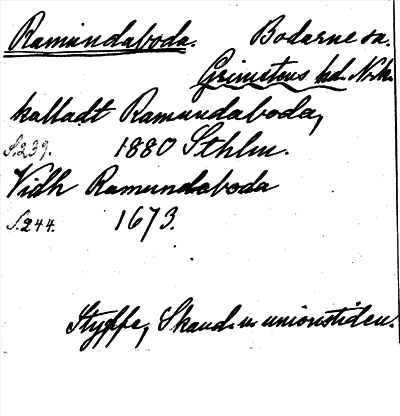 Ramundaboda. Bodarne sn.
Grimstens hd. Nrk.
kalladt Ramundaboda,
S.239. 1880 Sthlm.
Vidh Ramundaboda
S.244. 1673.
Styffe, Skand. u. unionstiden.